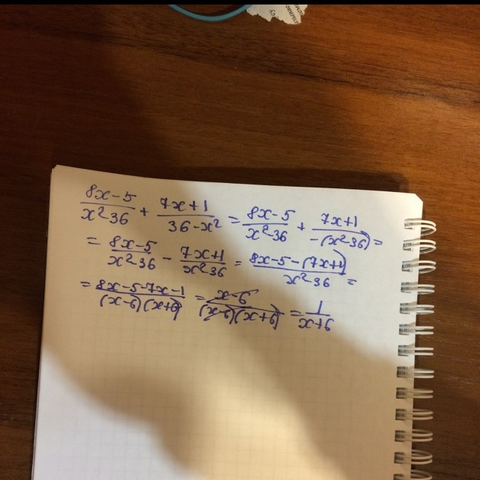 8x-5/x²36 + 7x+1/36-x² = 8x-5/x²36 + 7x+1/-(x²36) =
= 8x-5/x²36 - 7x+1/x²36 = 8x-5-(7x+1)/x²36 =
= 8x-5-7x-1/(x-6)(x+6) = x-6/(x-6)(x+6) = 1/x+6